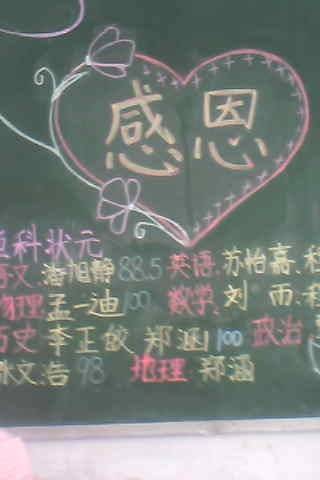 感恩
科状元
语文:海旭静 88.5 英语:苏怡嘉、程
物理:孟一迪 100 数学:刘雨、程
历史:李正皎 郑涵 100 政治
文浩 98 地理 郑涵